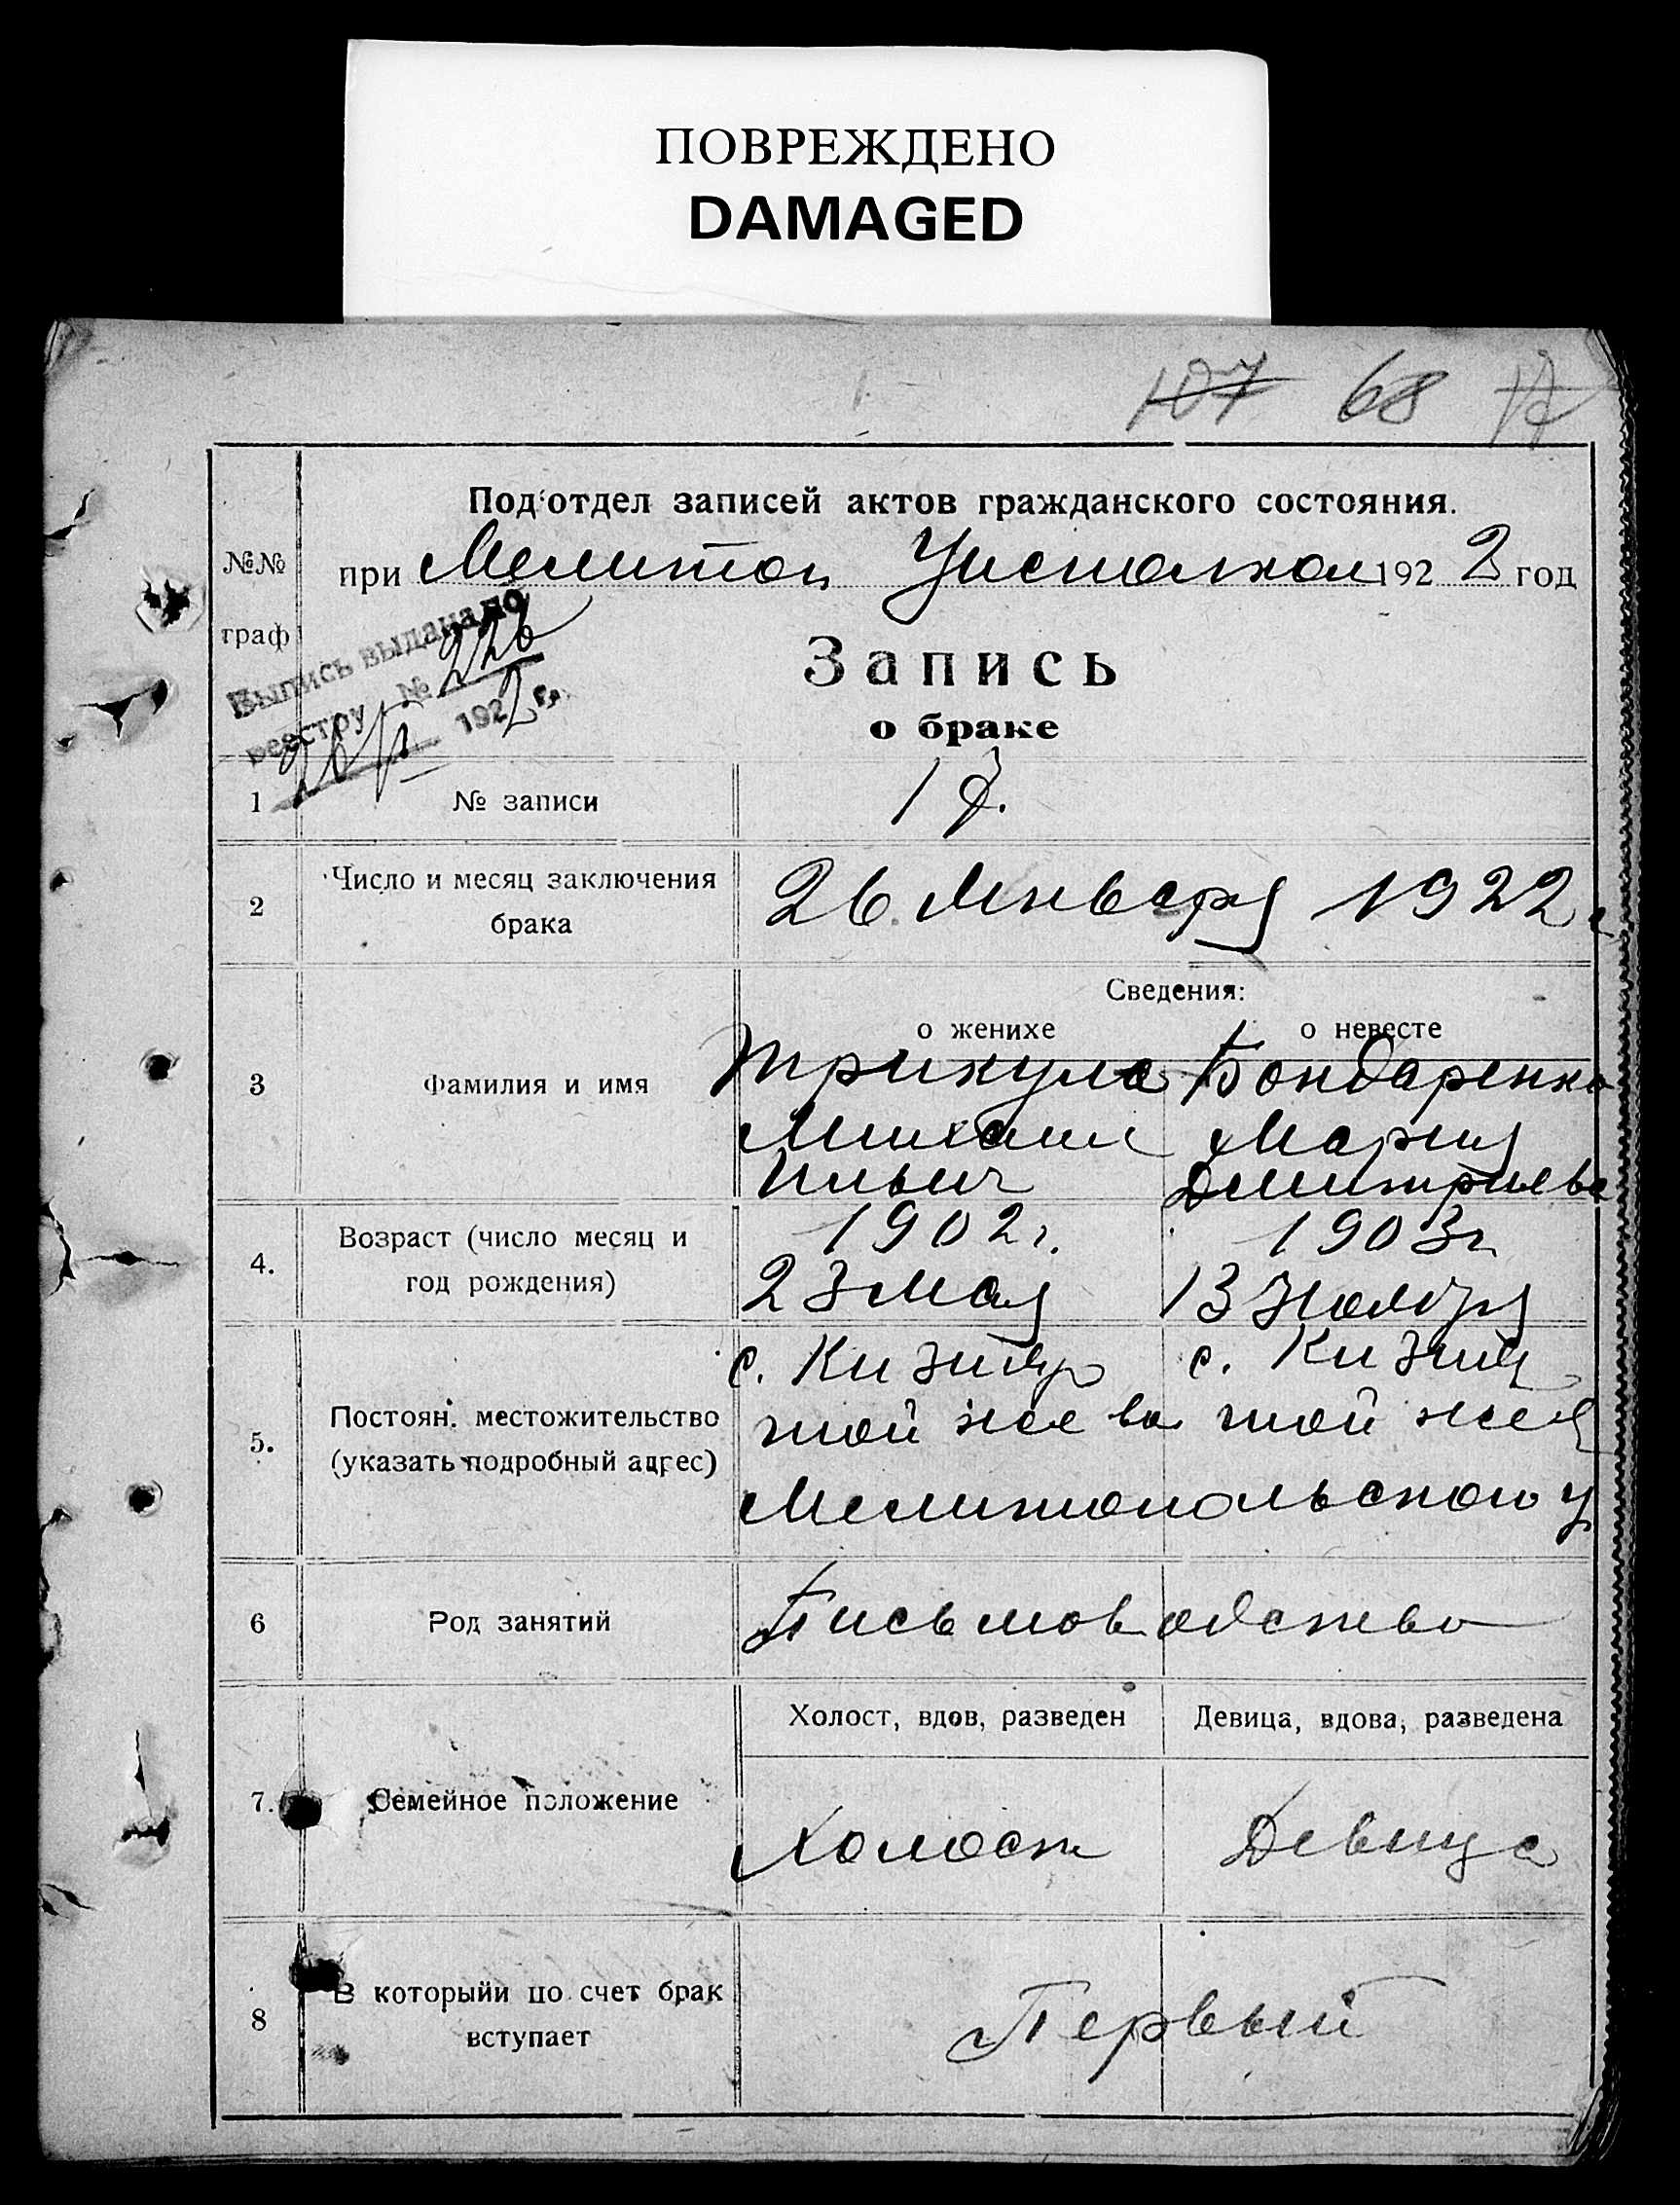 ПОВРЕЖДЕНО
DAMAGED
107 68 17
Под'отдел записей актов гражданского состояния.
№№ граф
при Мелитоп Уисполком 1922 год
Выпись выдана по
реестру № 226
26/I 1922 г.
Запись
о браке
1 № записи 17.
2 Число и месяц заключения
брака
26 Января 1922 г
Сведения:
о женихе о невесте
3 Фамилия и имя
Трикула Бондаренко
Михаил Мария
Ильич Дмитриева
4. Возраст (число месяц и
год рождения)
1902 г. 1903 г
23 мая 13 ноября
5. Постоян. местожительство
(указать подробный адрес)
с. Кизияр с. Кизияр
той же во той же
Мелитопольского у
6 Род занятий Письмоводство
Холост, вдов, разведен Девица, вдова, разведена
7. Семейное положение Холост Девица
8 В которыйи по счет брак
вступает
Первый